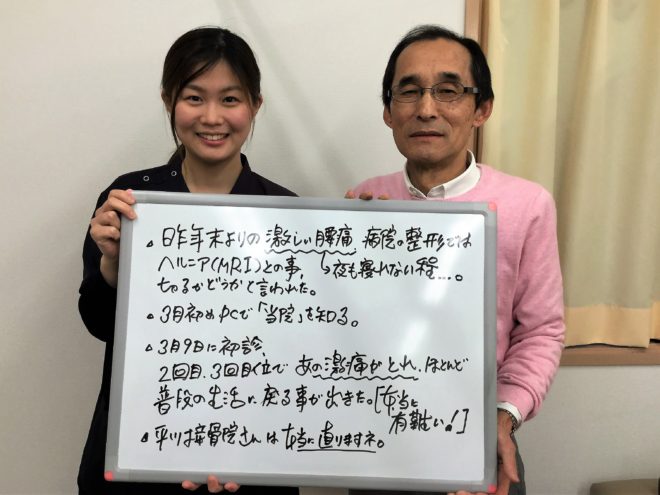 昨年末よりの激しい腰痛、病院の整形では
ヘルニア(MRI)との事、↳夜も寝れない程…。
切るかどうかと言われた。
3月初めPCで「当院」を知る。
3月9日に初診、
2回目、3回目位であの激痛がとれ、ほとんど
普段の生活に戻る事が出きた。「本当に
有難い!」
平川接骨院さんは本当に直りますネ。